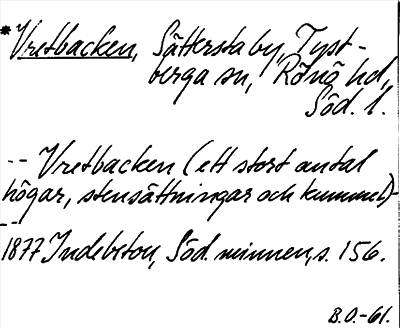 *Vretbacken, Sättersta by, Tyst-
berga sn, Rönö hd,
Söd. l.
-- Vretbacken (ett stort antal
högar, stensättningar och kummel)-
--
1877 Indebetou, Söd. minnen, s. 156.
B.O.-61.